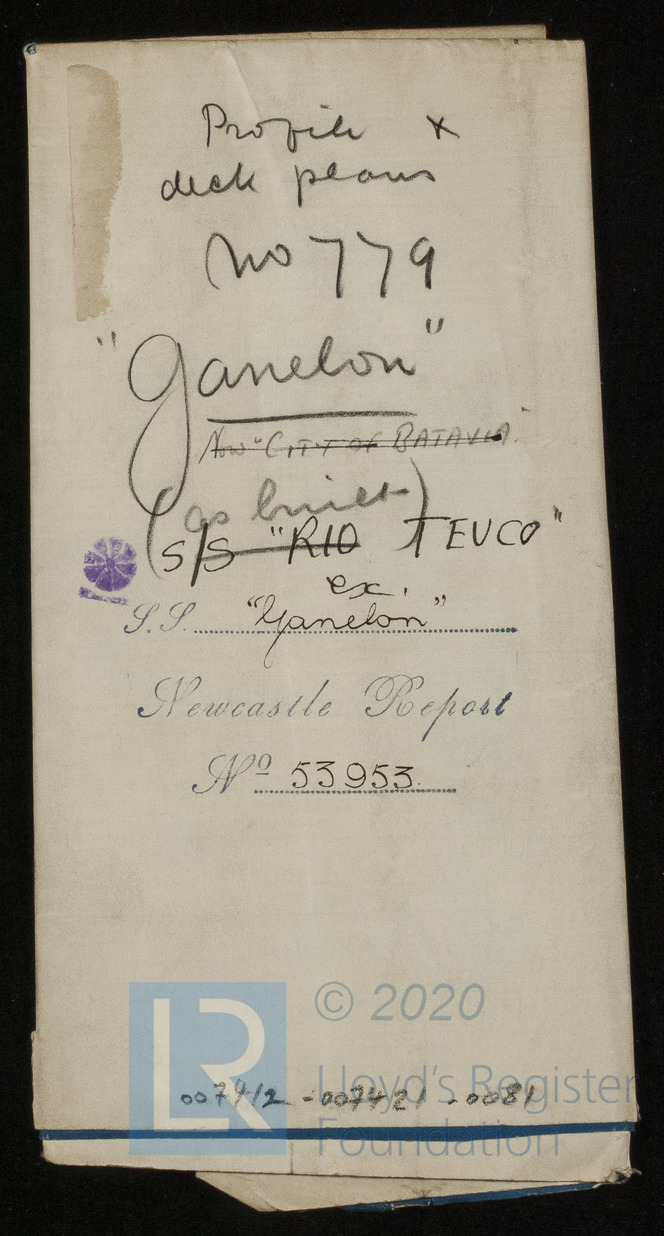 Profile &
deck plans
No 779
"Ganelon"
Now "CITY OF BATAVIA"
(as built)
S/S "RIO TEUCO"
ex.
S.S. "Ganelon"
Newcastle Report
No 53953
LR
© 2020
Lloyd's Register
007412 - 007421 - 0081
Foundation